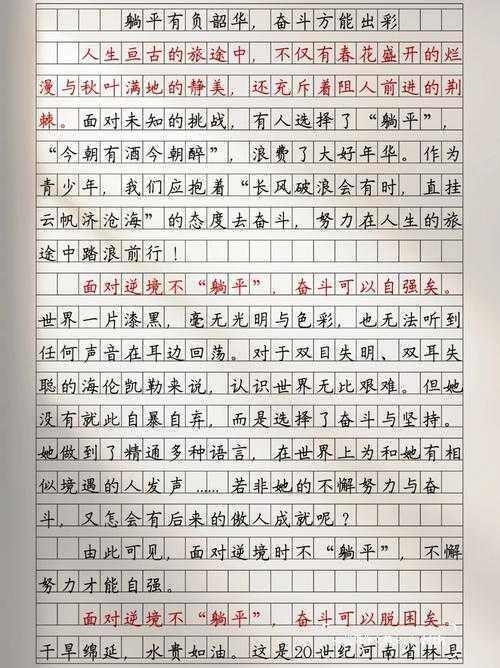 躺平有负韶华，奋斗方能出彩
人生亘古的旅途中，不仅有春花盛开的烂
漫与秋叶满地的静美，还充斥着阻人前进的荆
棘。面对未知的挑战，有人选择了“躺平”，
“今朝有酒今朝醉”，浪费了大好年华。作为
青少年，我们应抱着“长风破浪会有时，直挂
云帆济沧海”的态度去奋斗，努力在人生的旅
途中踏浪前行！
面对逆境不“躺平”，奋斗可以自强矣。
世界一片漆黑，毫无光明与色彩，也无法听到
任何声音在耳边回荡。对于双目失明、双耳失
聪的海伦凯勒来说，认识世界无比艰难。但她
没有就此自暴自弃，而是选择了奋斗与坚持。
她做到了精通多种语言，在世界上为和她有相
似境遇的人发声……若非她的不懈努力与奋
斗，又怎会有后来的傲人成就呢？
由此可见，面对逆境时不“躺平”，不懈
努力才能自强。
面对逆境不“躺平”，奋斗可以脱困矣。
干旱绵延，水贵如油。这是20世纪河南省林县